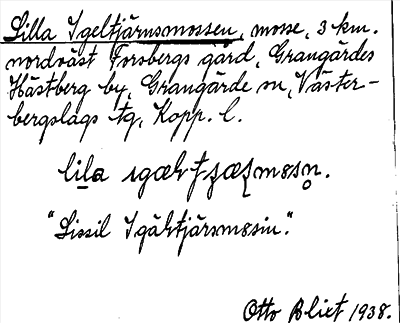 Lilla Igeltjärnsmossen, mosse, 3 km.
nordväst Forsbergs gård, Grangärdes
Hästberg by, Grangärde sn, Väster-
bergslags tg, Kopp. l.
"Lissil Igältjärsmosin."
Otto Blixt 1938.